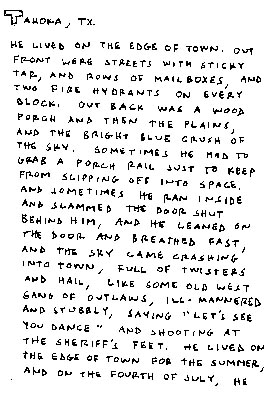 TAHOKA, TX.
HE LIVED ON THE EDGE OF TOWN. OUT
FRONT WERE STREETS WITH STICKY
TAR, AND ROWS OF MAILBOXES, AND
TWO FIRE HYDRANTS ON EVERY
BLOCK. OUT BACK WAS A WOOD
PORCH AND THEN THE PLAINS,
AND THE BRIGHT BLUE CRUSH OF
THE SKY. SOMETIMES HE HAD TO
GRAB A PORCH RAIL JUST TO KEEP
FROM SLIPPING OFF INTO SPACE.
AND SOMETIMES HE RAN INSIDE
AND SLAMMED THE DOOR SHUT
BEHIND HIM, AND HE LEANED ON
THE DOOR AND BREATHED FAST,
AND THE SKY CAME CRASHING
INTO TOWN, FULL OF TWISTERS
AND HAIL, LIKE SOME OLD WEST
GANG OF OUTLAWS, ILL-MANNERED
AND STUBBLY, SAYING "LET'S SEE
YOU DANCE" AND SHOOTING AT
THE SHERIFF'S FEET. HE LIVED ON
THE EDGE OF TOWN FOR THE SUMMER,
AND ON THE FOURTH OF JULY, HE